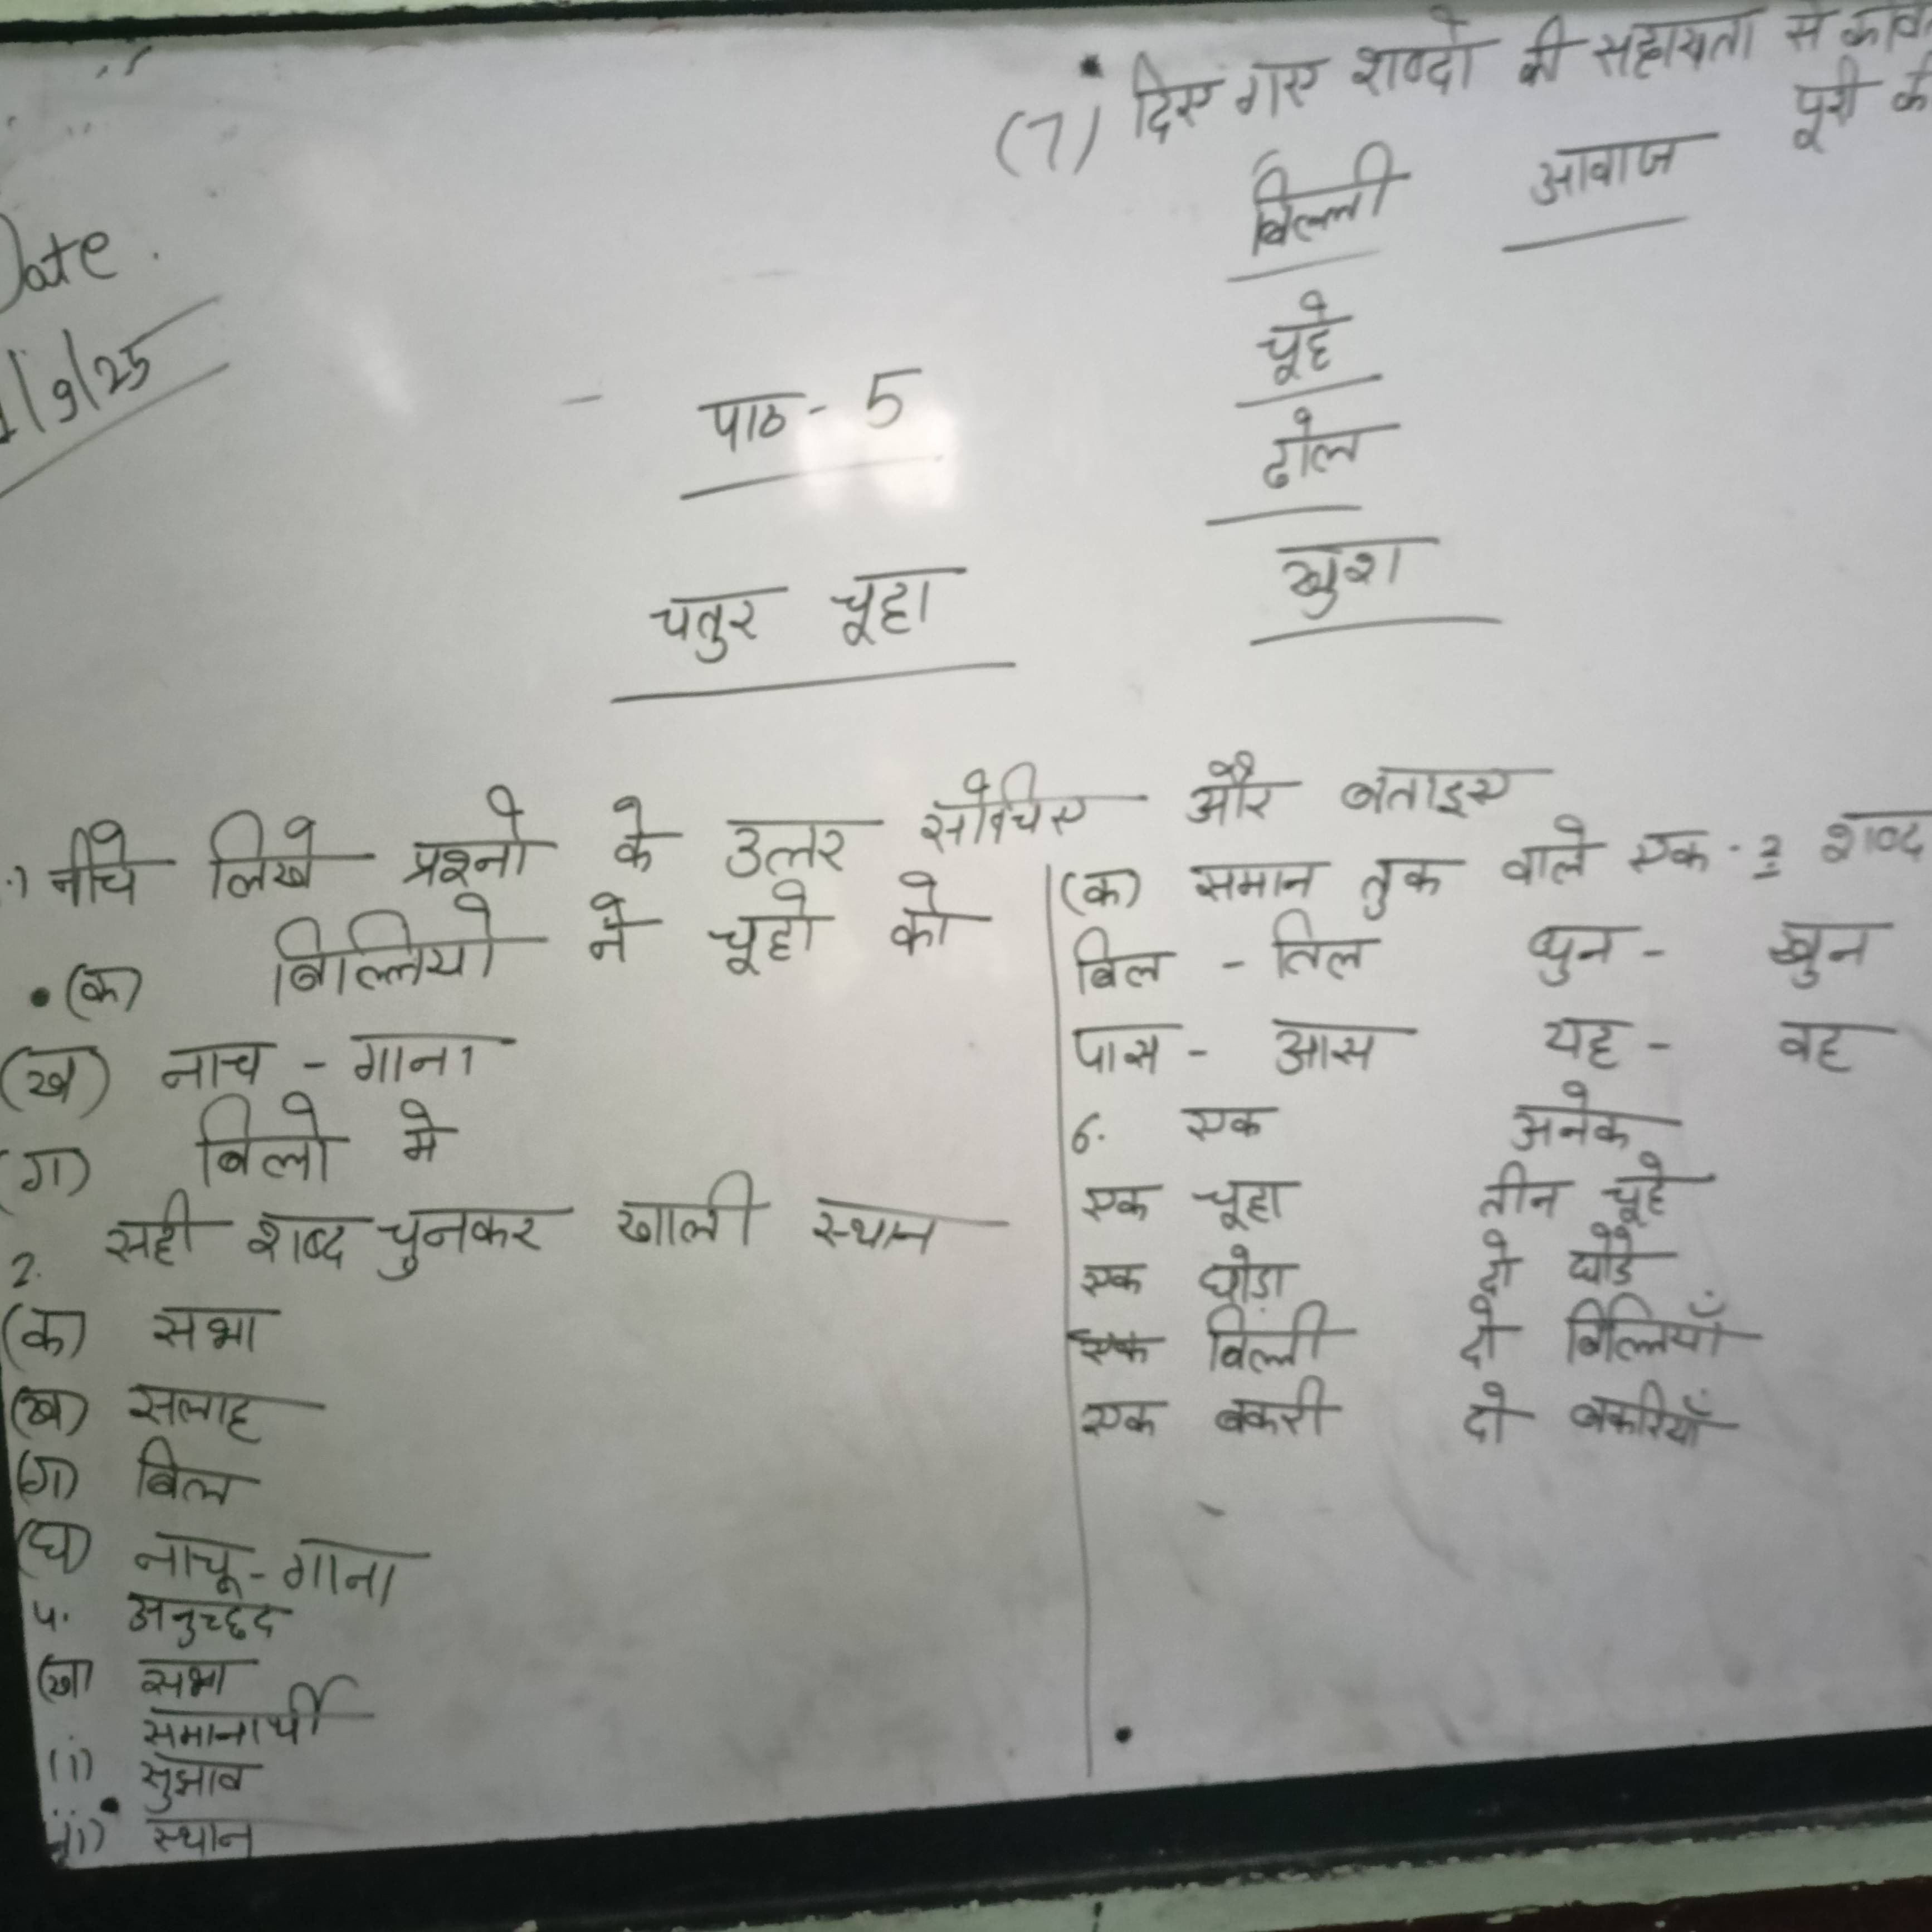 Date.
/9/25
(7) दिए गए शब्दो की सहायता से
पूरी
बिल्ली आवाज
चूहे
ढोल
खुश
पाठ - 5
चतुर चूहा
नीचे लिखे प्रश्नो के उत्तर सोचिए और बताइए
(क) बिल्लियो ने चूहो को
(ख) नाच - गाना
(ग) बिलो मे
2. सही शब्द चुनकर खाली स्थान
(क) सभा
(ख) सलाह
(ग) बिल
(घ) नाच - गाना
अनुच्छद
(ख) सभा
समानार्थी
(i) सुझाव
(ii) स्थान
(क) समान तुक वाले एक - 2 शब्द
बिल - तिल धुन - खुन
पास - आस यह - वह
6. एक अनेक
एक चूहा तीन चूहे
एक घोड़ा दो घोड़े
एक बिल्ली दो बिल्लियाँ
एक बकरी दो बकरियाँ